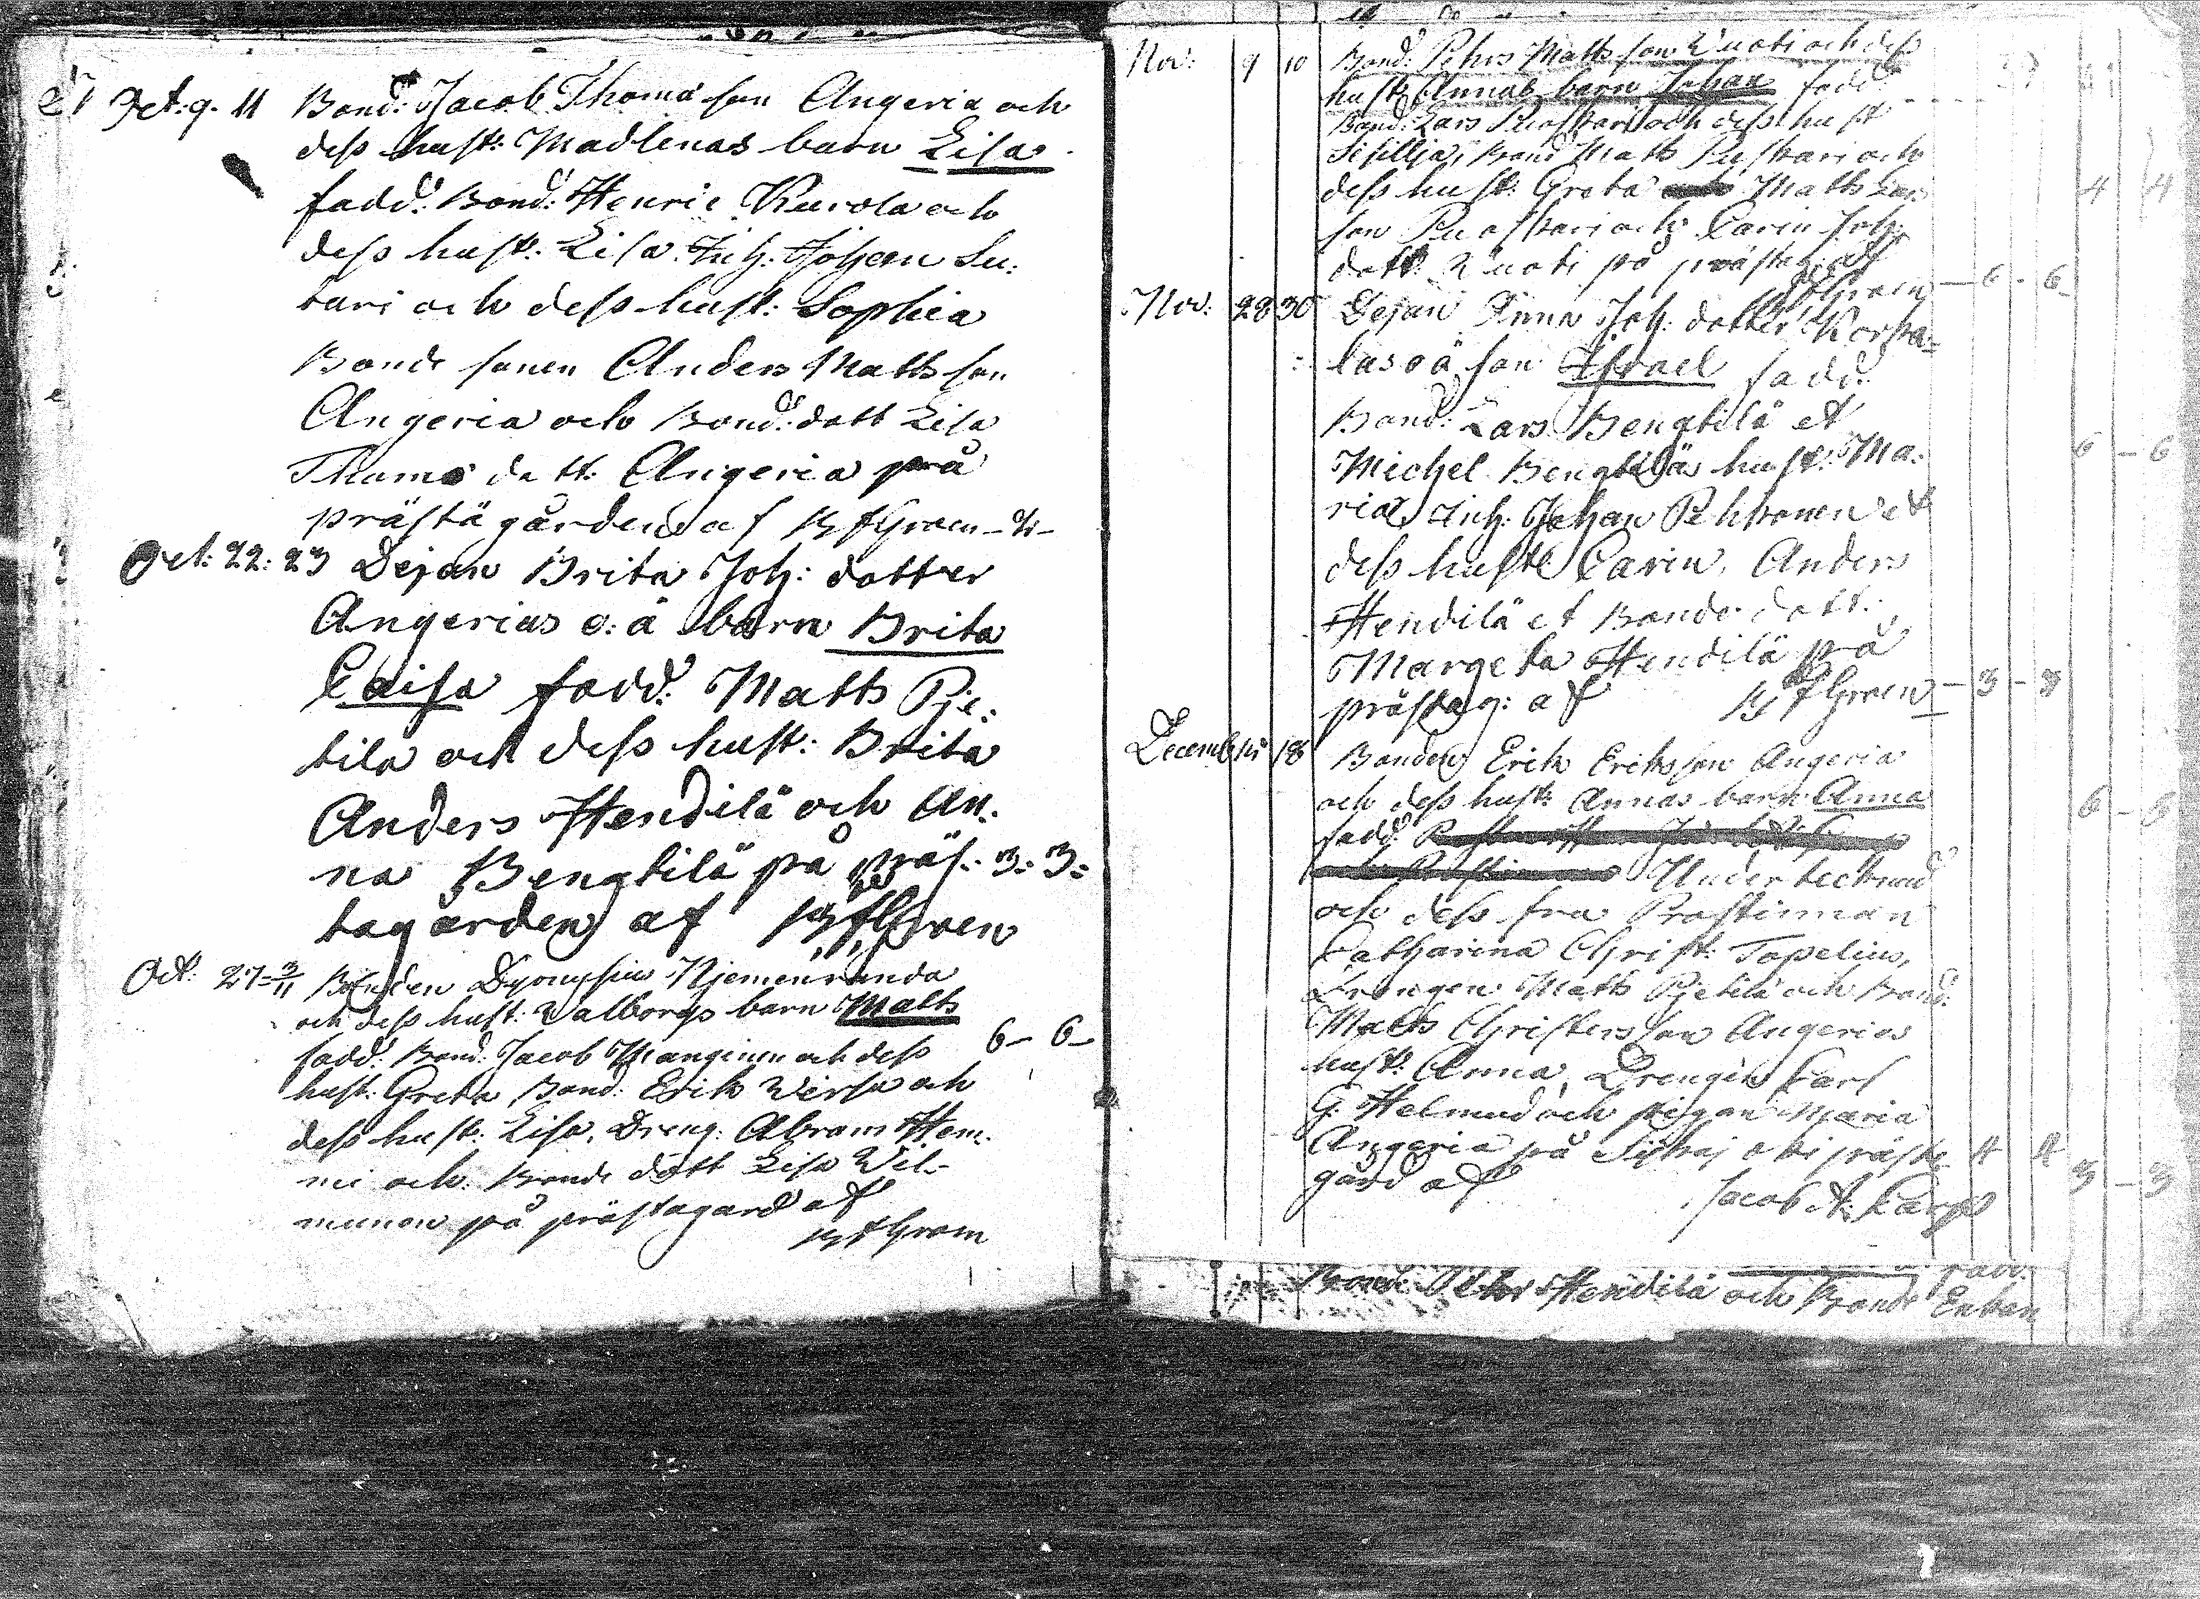 Oct. 9. 11 Bond: Jacob Thomas son Angeria och
dess hust: Madlenas barn Lisa
fadd: Bond: Henric Kurola och
dess hust: Lisa. Inh: Johan Su:
tari och dess hust: Sophia
Bonde sonen Anders Matts son
Angeria och Bond: dott Lisa
Thoms dott: Angeria på
prästagården af
Oct: 22: 23 Dejan Brita Joh: dotter
Angerias o: ä barn Brita
Caisa fadd: Matts Pje:
tila och dess hust: Brita
Anders Hendilä och An:
na Bengtilä på präs: 3: 3:
tagården af
Oct: 27 3/11 Bonden Dyonysius Njemenranda
och dess hust: Valborgs barn Matts
fadd: Bond: Jacob Manginen och dess 6 - 6 -
hust: Greta Bond: Erik Wirsu och
dess hust: Lisa, Dreng: Abram Hem:
mi och Bonde dott Lisa Wil-
munen på prästagård af
Nov: 9 10 Bond: Pehrs Matts son Wuoti och dess
hust: Annas barn Johan fadd:
Bond: Lars Ruoskari och dess hust
Sisillja, Bond Matts Ruoskari och
dess hust: Greta Matts Lars 4 4
son Ruoskari och Carin Joh:
dott: Wuoti på prästag: af
6 - 6
Nov: 28 30 Dejan Anna Joh: dotter Korpa-
las oä son Israel fadd:
Bond: Lars Bengtilä et
Michel Bengtiläs hust: Ma: 6 - 6
ria, Inh: Johan Pehkonen et
dess hust: Carin, Anders
Hendilä et Bonde dott:
Margeta Hendilä på
prästag: af 3 - 3
Decemb 18 Bonden Erik Eriks son Angeria
och dess hust: Annas barn Anna 6 - 6
fadd:
Undertecknad
och dess fru Prostinnan
Catharina Christ: Topelius,
Drengen Matts Pjetilä och Bond:
Matts Christers son Angerias
hust: Anna, Drengen Carl
G: Helmud och pigan Maria
Angeria på präste 4 4
gård af Jacob 3 - 3
Bond: Pehr Hendilä och Bonde Enkan